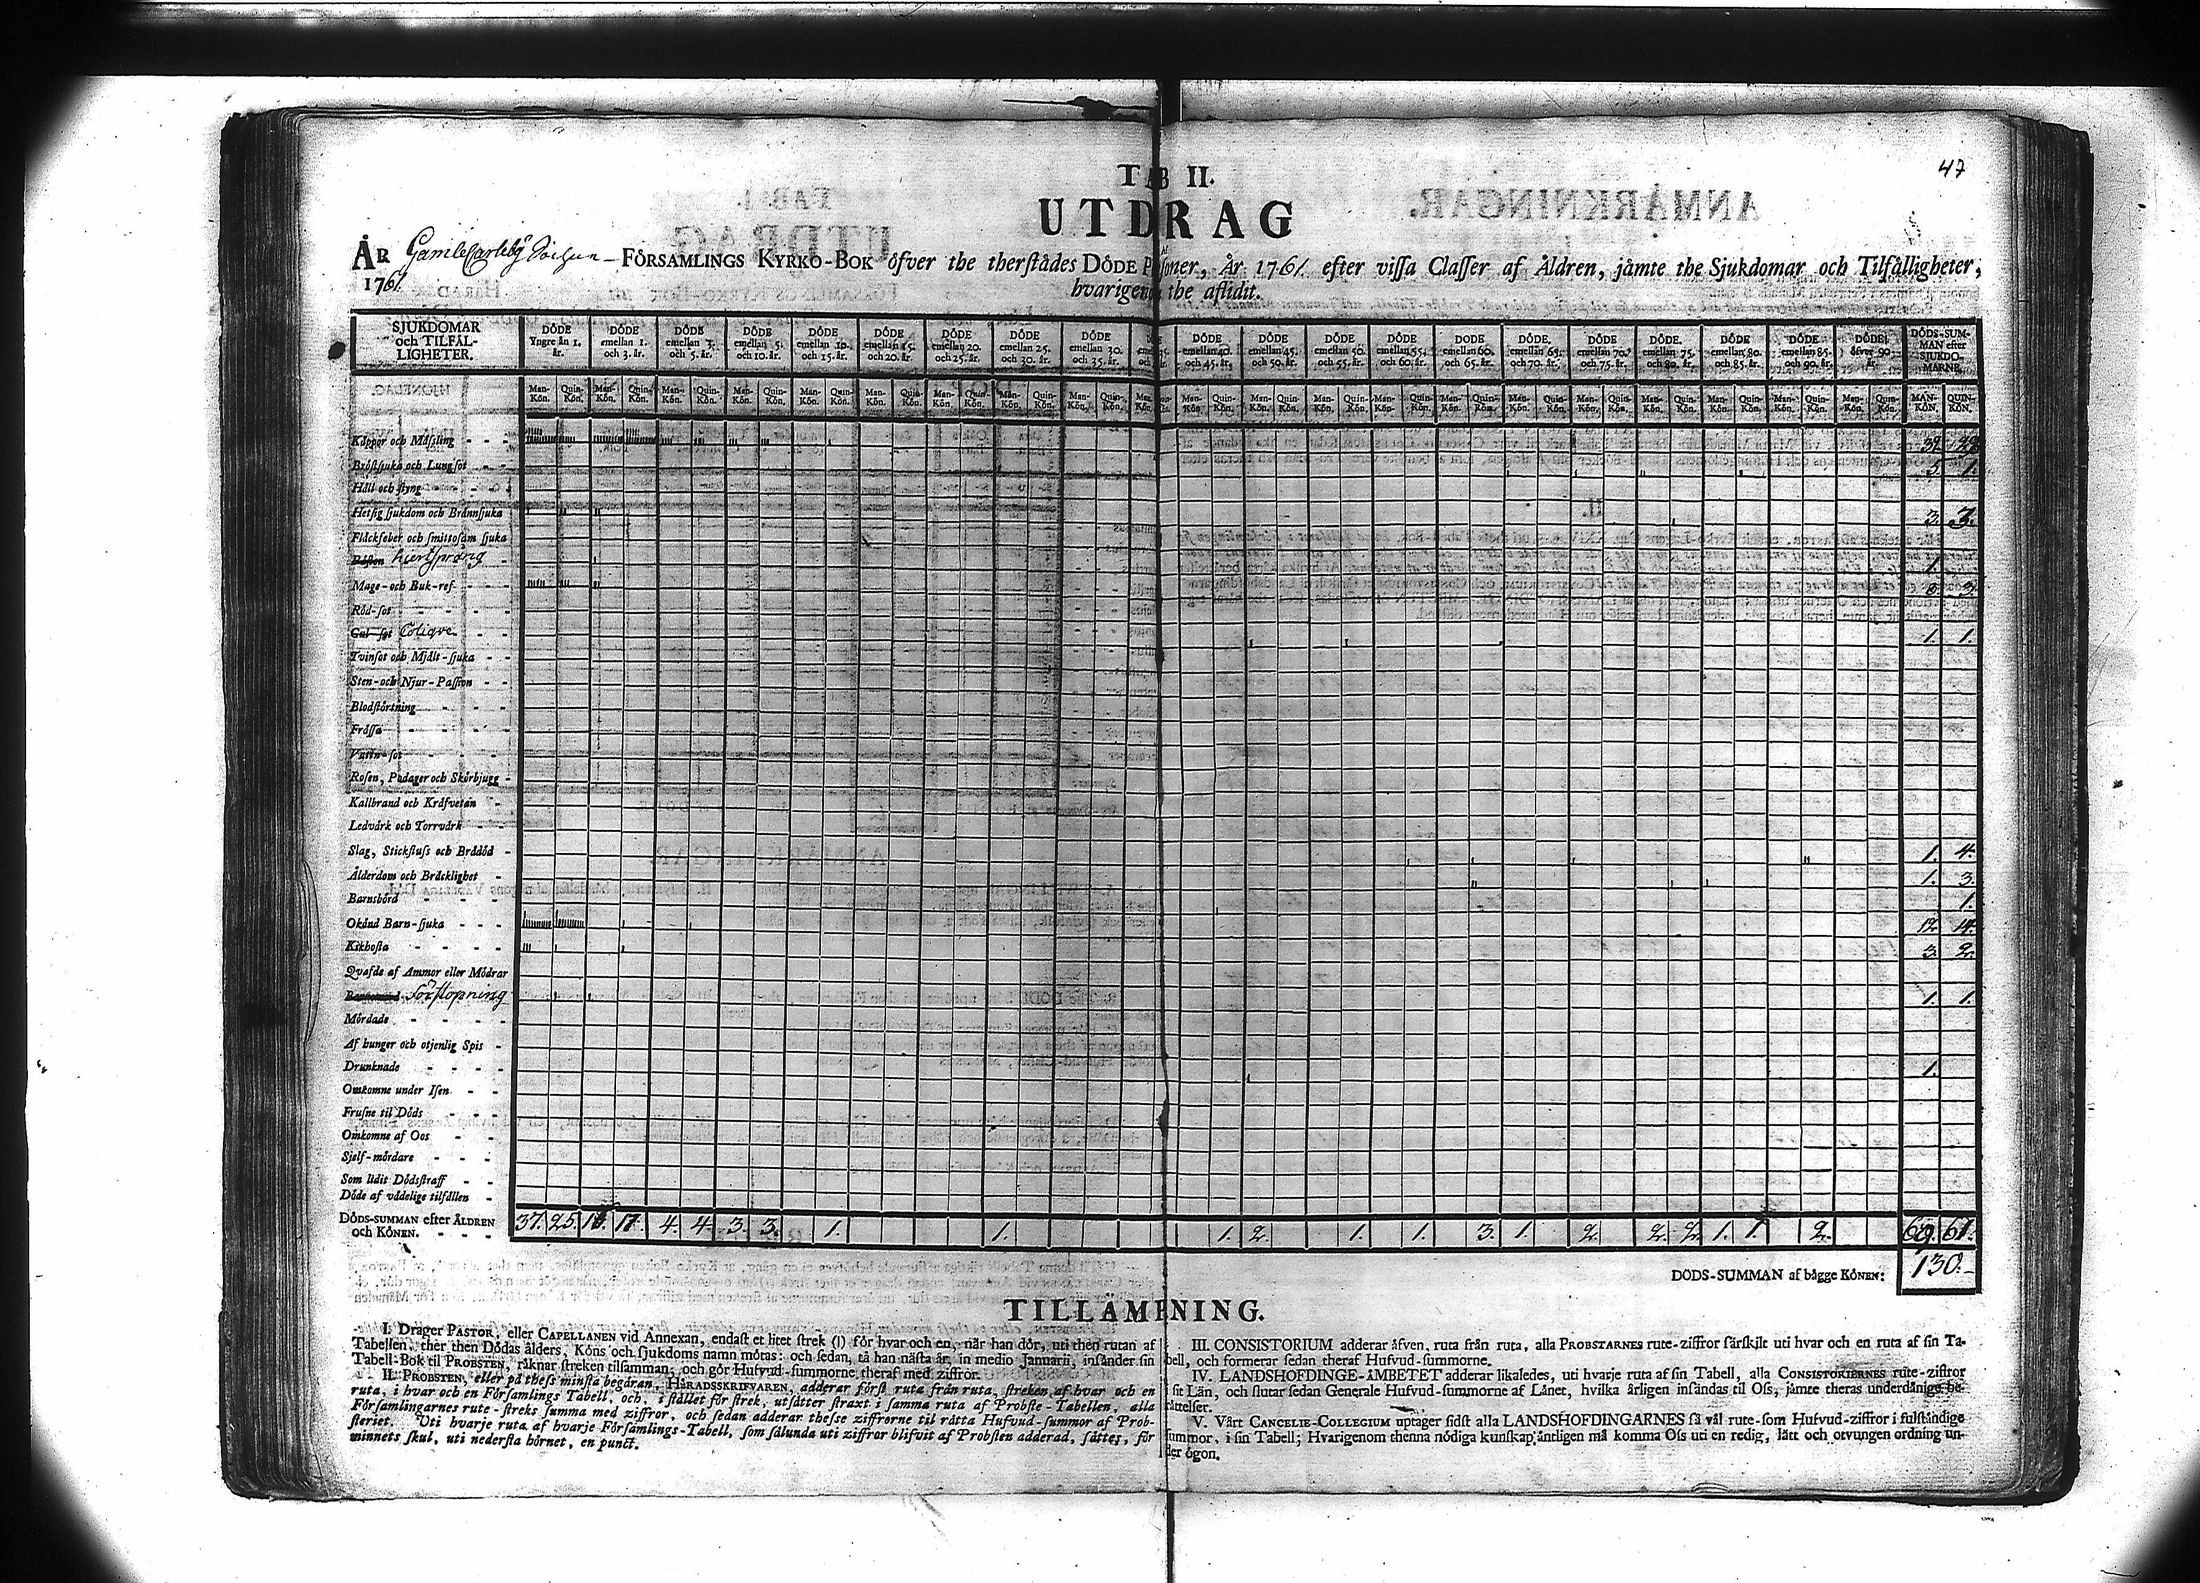 47
TAB II.
UTDRAG
ÅR GamleCarleby Församlings Kyrko-Bok öfver the therstädes DÖDE Personer, År 1761 efter vissa Classer af Åldren, jämte the Sjukdomar och Tilfälligheter,
1761. hvarigenom the aflidit.
SJUKDOMAR och TILFÄLLIGHETER.
DÖDE Yngre än 1. år.
DÖDE emellan 1. och 3. år.
DÖDE emellan 3. och 5. år.
DÖDE emellan 5. och 10. år.
DÖDE emellan 10. och 15. år.
DÖDE emellan 15. och 20. år.
DÖDE emellan 20. och 25. år.
DÖDE emellan 25. och 30. år.
DÖDE emellan 30. och 35. år.
DÖDE emellan 40. och 45. år.
DÖDE emellan 45. och 50. år.
DÖDE emellan 50. och 55. år.
DÖDE emellan 55. och 60. år.
DÖDE emellan 60. och 65. år.
DÖDE emellan 65. och 70. år.
DÖDE emellan 70. och 75. år.
DÖDE emellan 75. och 80. år.
DÖDE emellan 80. och 85. år.
DÖDE emellan 85. och 90. år.
DÖDE öfver 90 år.
DÖDS-SUMMAN efter SJUKDOMARNE.
Man-Kön. Quin-Kön.
MAN-KÖN. QUIN-KÖN.
Kåppor och Mässling
Bröstsjuka och Lungsot 5. 1.
Håll och styng
Hetsig sjukdom och Brännsjuka 3.
Fläckfeber och smittosam sjuka
hiertsprång 1.
Mage- och Buk-ref 3.
Röd-sot
Gul-sot Colique 1. 1.
Tvinsot och Mjält-sjuka
Sten- och Njur-Passion
Blodstörtning
Fråssa
Vattn-sot
Rosen, Podager och Skörbjugg
Kallbrand och Kräfvetan
Ledvärk och Torrvärk
Slag, Stickfluss och Brådöd 1. 4.
Ålderdom och Bräcklighet 1. 3.
Barnsbörd 1.
Okänd Barn-sjuka 12 14.
Kikhosta 3. 2.
Qvafde af Ammor eller Mödrar
Förstopning 1. 1.
Mördade
Af hunger och otjenlig Spis
Drunknade 1.
Omkomne under Isen
Frusne til Döds
Omkomne af Oos
Sjelf-mördare
Som lidit Dödsstraff
Döde af vådelige tilfällen
DÖDS-SUMMAN efter ÅLDREN och KÖNEN. 37. 25. 17. 4. 4. 3. 3. 1. 1. 1. 2. 1. 1. 3. 1. 2. 2. 2. 1. 1. 2. 61.
DÖDS-SUMMAN af bägge KÖNEN: 130.
TILLÄMPNING.
I. Drager PASTOR, eller CAPELLANEN vid Annexan, endast et litet strek (l) för hvar och en, när han dör, uti then rutan af
Tabellen, ther then Dödas ålders, Köns och sjukdoms namn mötas: och sedan, tå han nästa år, in medio Januarii, insänder sin
Tabell-Bok til PROBSTEN, räknar streken tilsamman, och gör Hufvud-summorne theraf med ziffror.
II. PROBSTEN, eller på thess minsta begäran, HÄRADSSKRIFVAREN, adderar först ruta från ruta, streken af hvar och en
ruta, i hvar och en Församlings Tabell, och, i stället för strek, utsätter straxt i samma ruta af Probste-Tabellen, alla
Församlingarnes rute-streks summa med ziffror, och sedan adderar thesse ziffrorne til rätta Hufvud-summor af Prob-
steriet. Uti hvarje ruta af hvarje Församlings-Tabell, som sålunda uti ziffror blifvit af Probsten adderad, sättes, för
minnets skul, uti nedersta hörnet, en punct.
III. CONSISTORIUM adderar äfven, ruta från ruta, alla PROBSTARNES rute-ziffror särskilt uti hvar och en ruta af sin Ta-
bell, och formerar sedan theraf Hufvud-summorne.
IV. LANDSHOFDINGE-ÄMBETET adderar likaledes, uti hvarje ruta af sin Tabell, alla CONSISTORIERNES rute-ziffror
i sit Län, och slutar sedan Generale Hufvud-summorne af Länet, hvilka årligen insändas til Oss, jämte theras underdånige be-
rättelser.
V. Vårt CANCELIE-COLLEGIUM uptager sidst alla LANDSHOFDINGARNES så väl rute-som Hufvud-ziffror i fulständige
summor, i sin Tabell; Hvarigenom thenna nödiga kunskap äntligen må komma Oss uti en redig, lätt och otvungen ordning un-
der ögon.